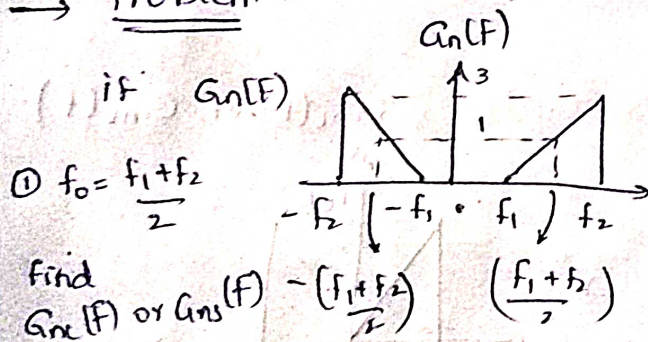 → Problem
Gn(F)
if Gn(F)
3
1
① f₀ = f₁+f₂/2
-f₂ -f₁ f₁ f₂
Find
Gnc(F) or Gns(F) -(f₁+f₂/2) (f₁+f₂/2)